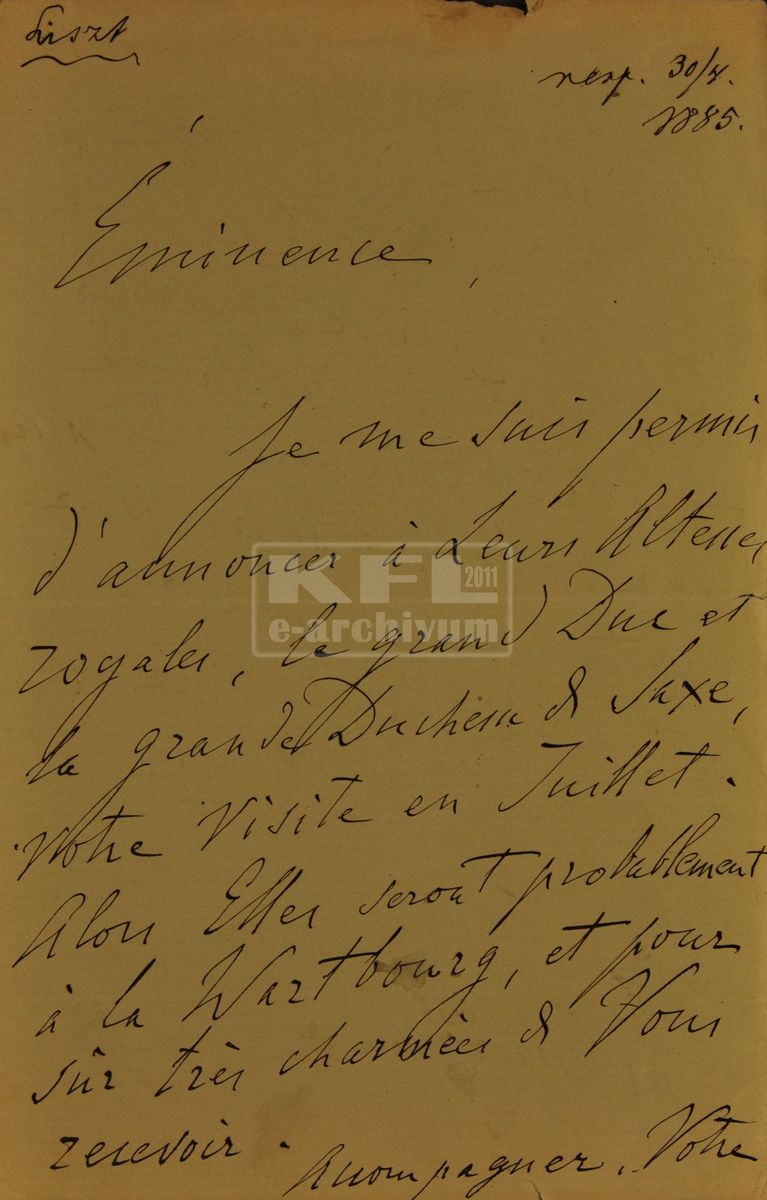 Liszt
resp. 30/4.
1885.
Éminence,
Je me suis permis
d'annoncer à Leurs Altesses
royales, le grand Duc et
la grande Duchesse de Saxe,
votre visite en Juillet.
Alors Elles seront probablement
à la Wartbourg, et pour
sûr très charmées de Vous
recevoir.
Accompagner Votre
KFL 2011
e-archivum